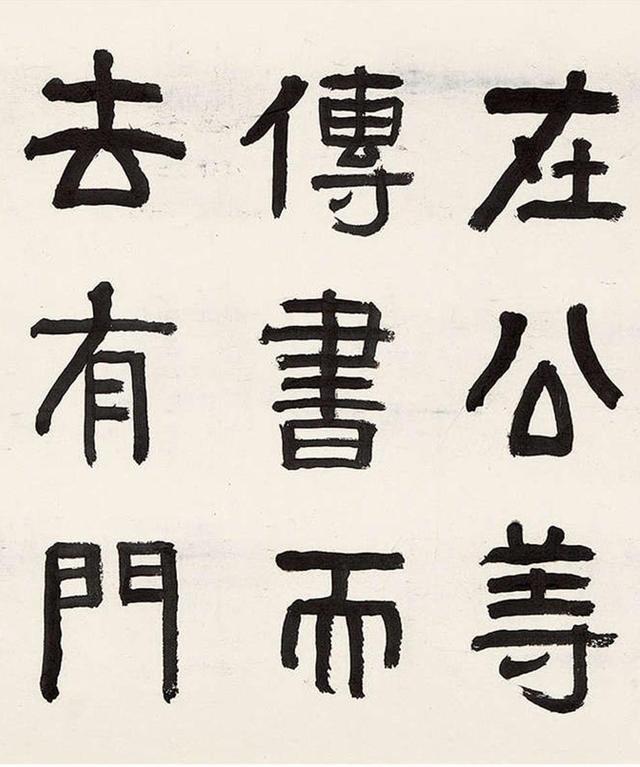 在公等
傳書而
去有門